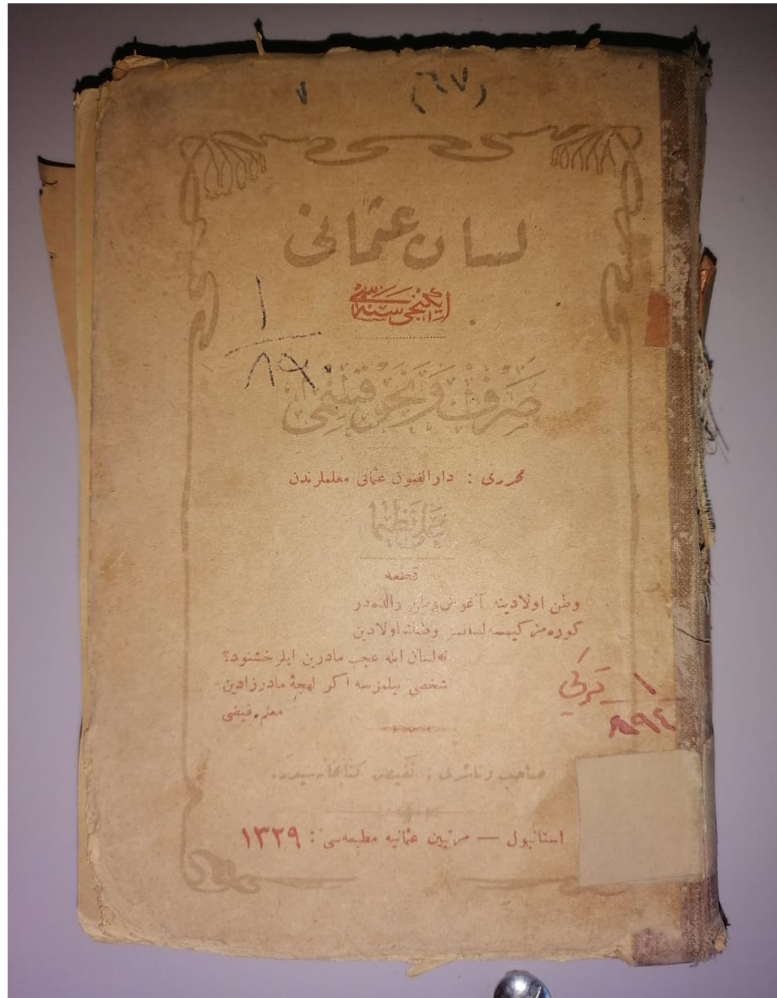 ٧ (٦٧)
لسان عثمانی
ایکنجی سنه
١
٨٩٠
صرف و نحو قسمی
محرری : دار الفنون عثمانی معلملرندن
علی نظیما
قطعه
وطن اولادینه آغوش والده در
کوره مز کیمسه لسانسز وطنك اولادین
نه لسان ایله عجب مادرین ایلر خشنود؟
شخصی بیلمزسه اکر لهجهٔ مادرزادین
معلم فیضی
ترکی
١
٨٩٤
صاحب و ناشری : تفیض کتابخانه سیدر.
استانبول — مرتبین عثمانیه مطبعه سی : ١٣٢٩